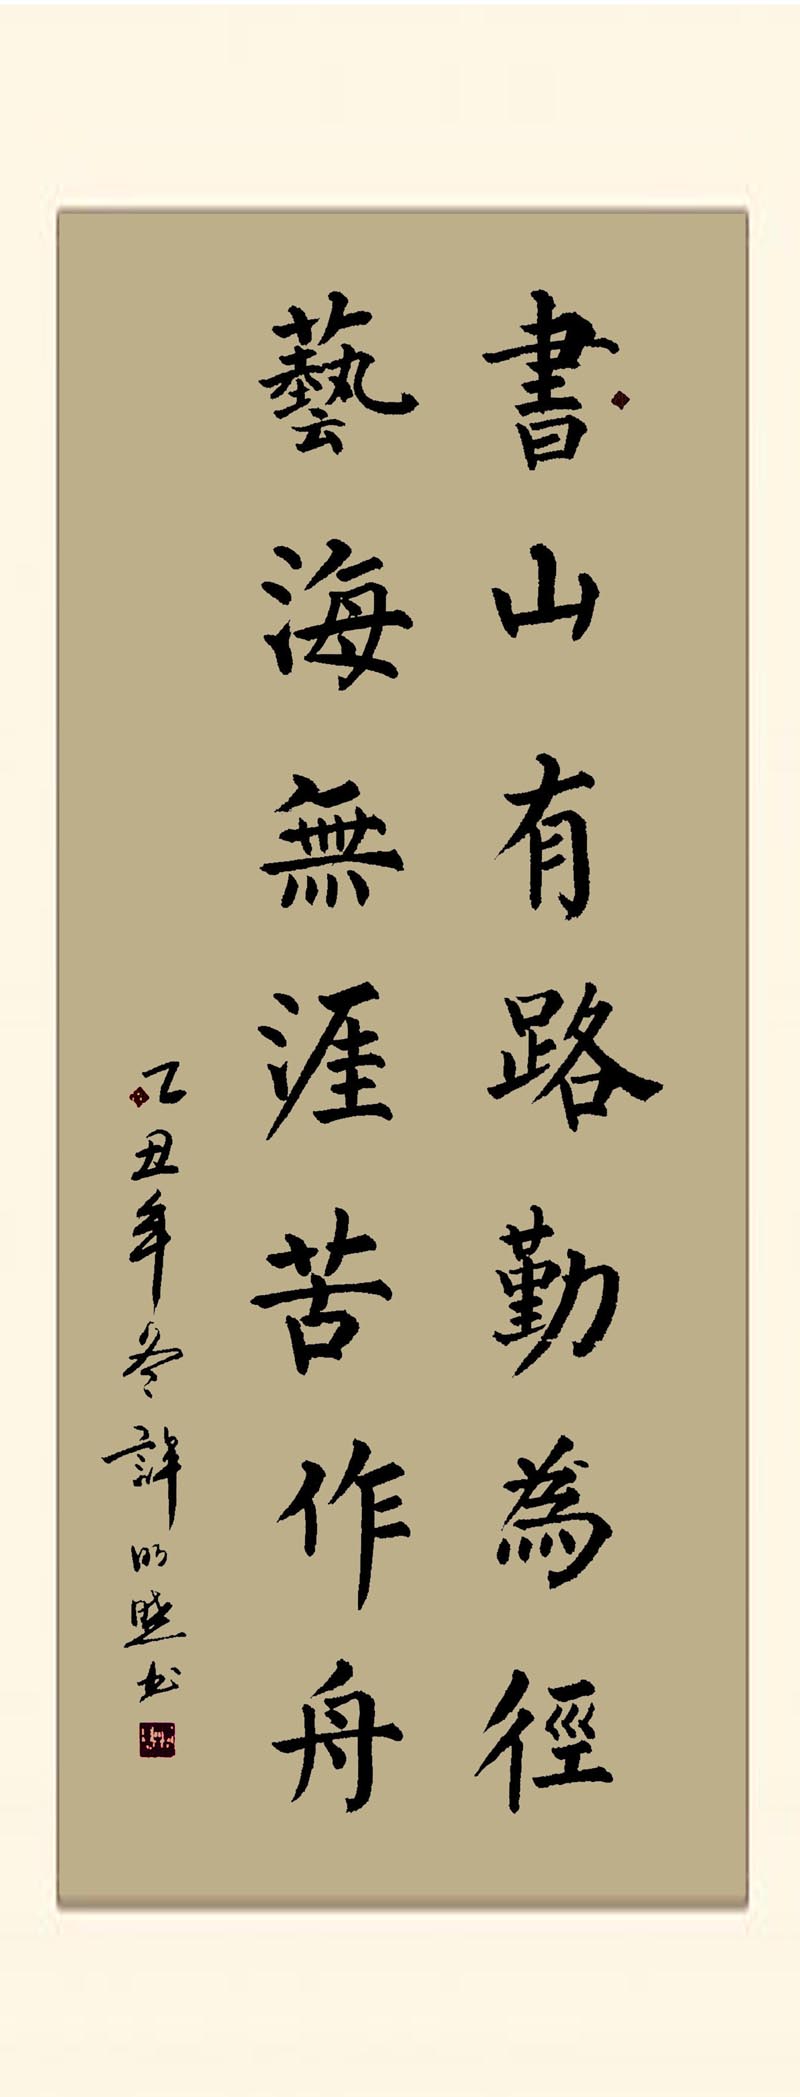 書山有路勤為徑
藝海無涯苦作舟
乙丑年冬許明照书